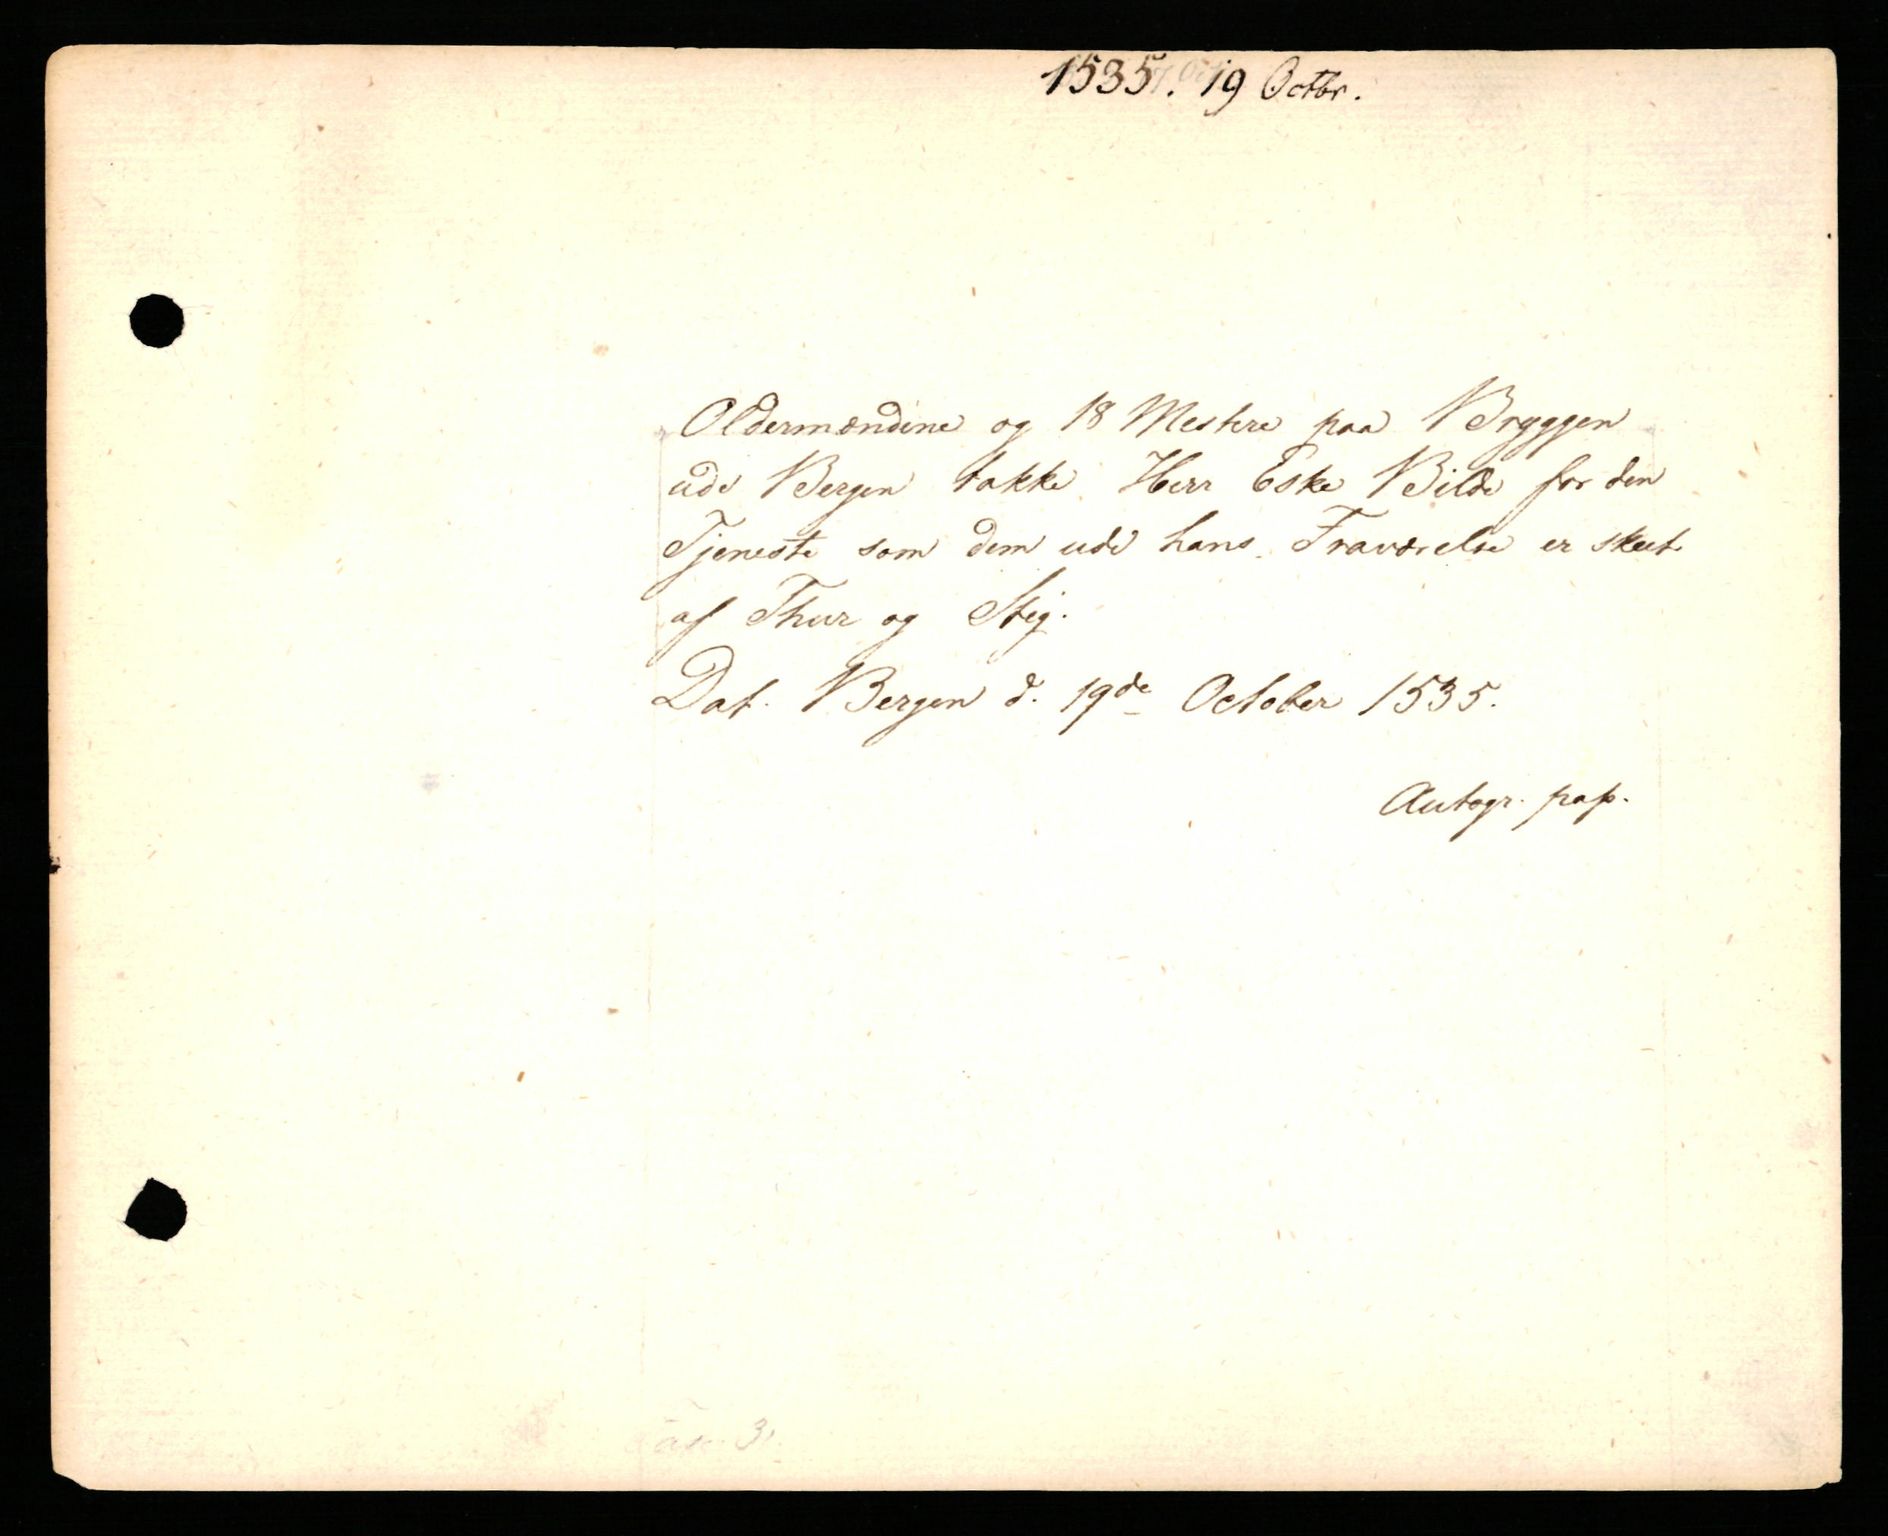 1535. 19 Octbr.
Oldermændene og 18 Mestere paa Bryggen
udi Bergen takke Herr Eske Bilde for den
Tjeneste som dem udi hans Fraværelse er skeet
af Thur og Stig.
Dat. Bergen d. 19de October 1535.
Autogr. pap.